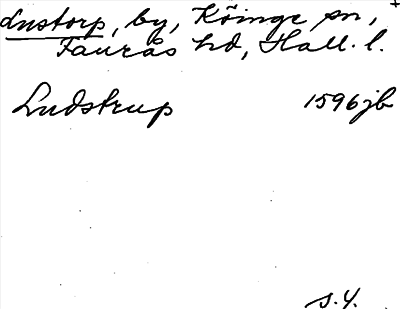 Lustorp, by, Köinge sn, +
Faurås hd, Hall. l.
Ludstrup 1596 jb
S.Y.